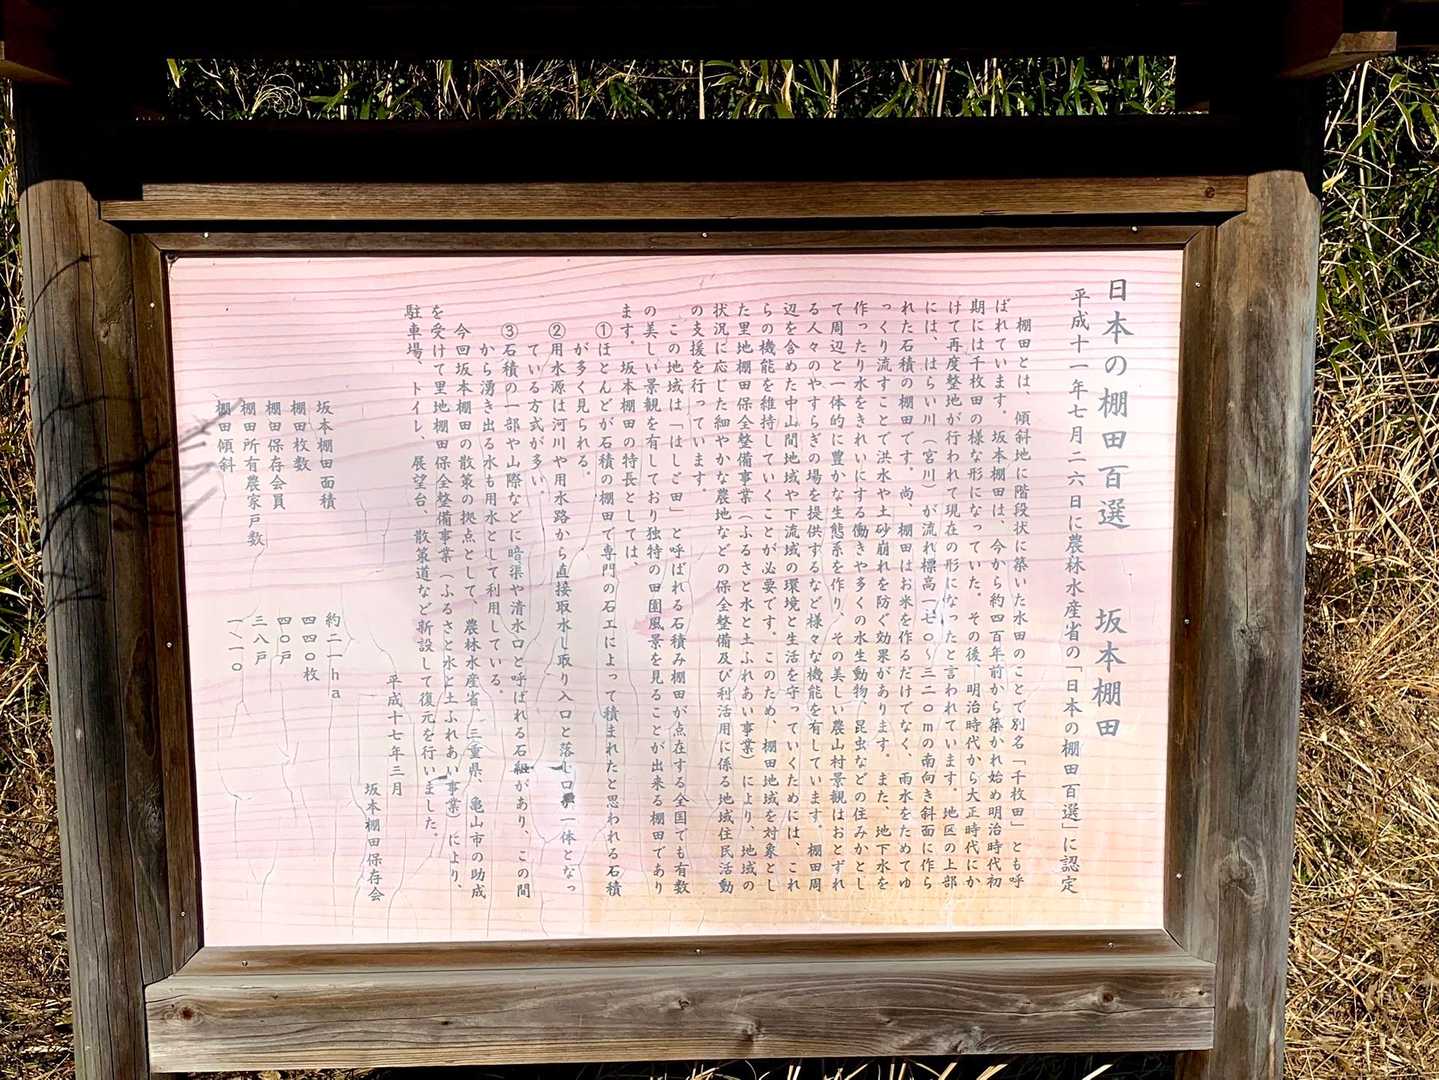 日本の棚田百選　坂本棚田
平成十一年七月二六日に農林水産省の「日本の棚田百選」に認定
棚田とは、傾斜地に階段状に築いた水田のことで別名「千枚田」とも呼
ばれています。坂本棚田は、今から約四百年前から築かれ始め明治時代初
期には千枚田の様な形になっていた。その後、明治時代から大正時代にか
けて再度整地が行われて現在の形になったと言われています。地区の上部
には、はらい川（宮川）が流れ標高一七〇～三二〇mの南向き斜面に作ら
れた石積の棚田です。尚、棚田はお米を作るだけでなく、雨水をためてゆ
っくり流すことで洪水や土砂崩れを防ぐ効果があります。また、地下水を
作ったり水をきれいにする働きや多くの水生動物、昆虫などの住みかとし
て周辺と一体的に豊かな生態系を作り、その美しい農山村景観はおとずれ
る人々のやすらぎの場を提供するなど様々な機能を有しています。棚田周
辺を含めた中山間地域や下流域の環境と生活を守っていくためには、これ
らの機能を維持していくことが必要です。このため、棚田地域を対象とし
た里地棚田保全整備事業（ふるさと水と土ふれあい事業）により、地域の
状況に応じた細やかな農地などの保全整備及び利活用に係る地域住民活動
の支援を行っています。
この地域は「はしご田」と呼ばれる石積み棚田が点在する全国でも有数
の美しい景観を有しており独特の田園風景を見ることが出来る棚田であり
ます。坂本棚田の特長としては、
①ほとんどが石積の棚田で専門の石工によって積まれたと思われる石積
が多く見られる。
②用水源は河川や用水路から直接取水し取り入口と落し口が一体となっ
ている方式が多い。
③石積の一部や山際などに暗渠や清水口と呼ばれる石組があり、この間
から湧き出る水も用水として利用している。
今回坂本棚田の散策の拠点として、農林水産省、三重県、亀山市の助成
を受けて里地棚田保全整備事業（ふるさと水と土ふれあい事業）により、
駐車場、トイレ、展望台、散策道など新設して復元を行いました。
平成十七年三月
坂本棚田保存会
坂本棚田面積　約二一ha
棚田枚数　四四〇枚
棚田保存会員　四〇戸
棚田所有農家戸数　三八戸
棚田傾斜　一／一〇